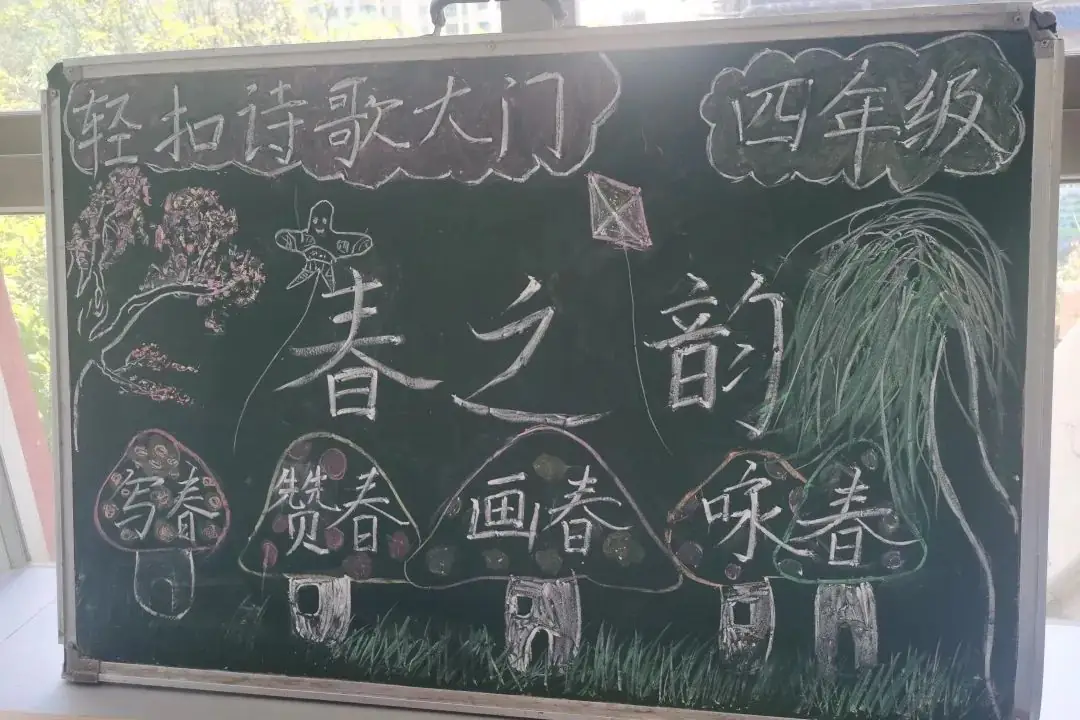 轻扣诗歌大门 四年级
春之韵
写春 赞春 画春 咏春